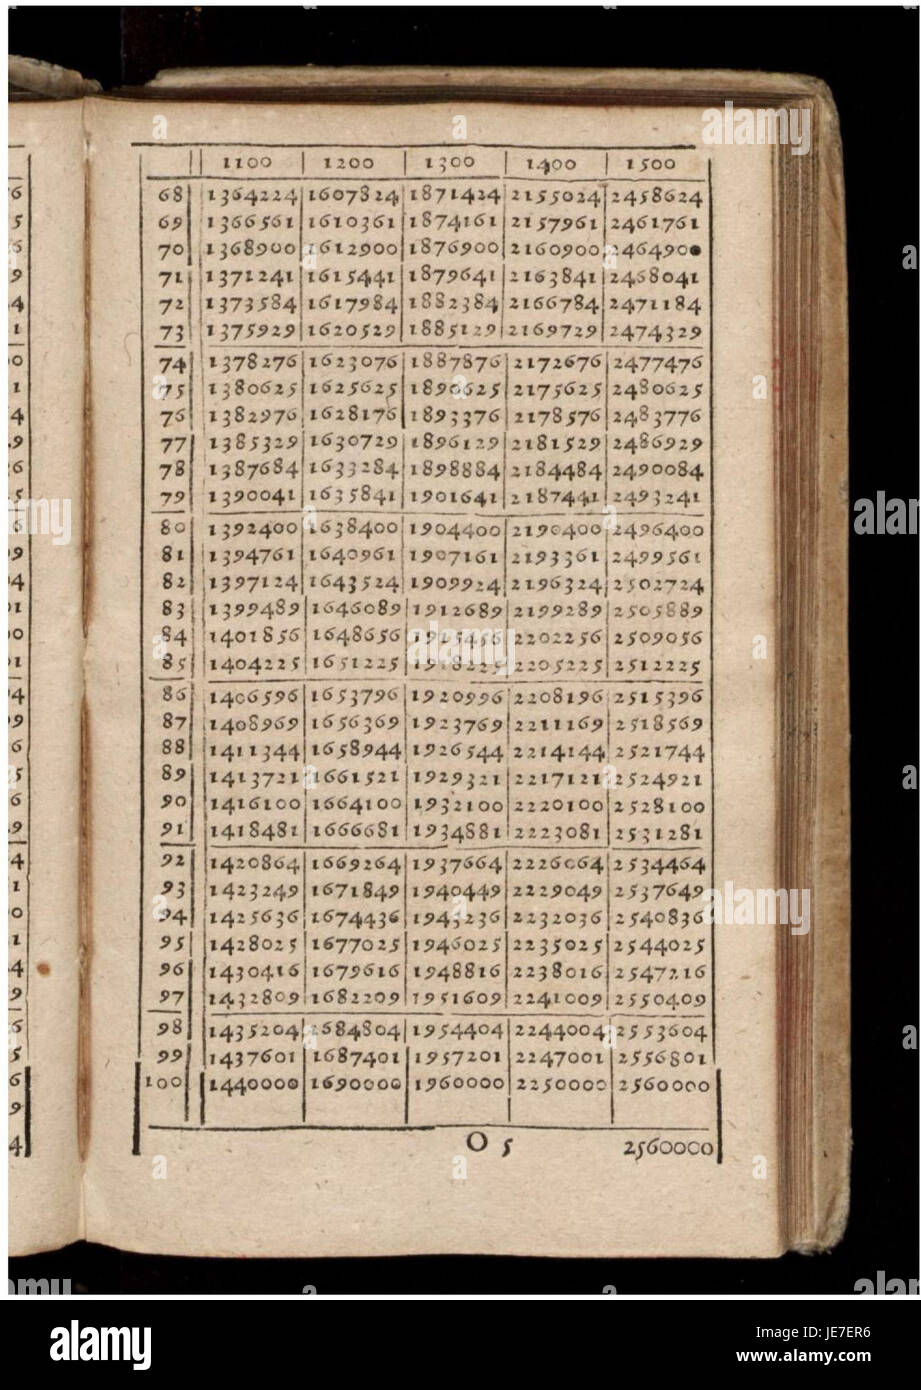 1100 1200 1300 1400 1500
68 1364224 1607824 1871424 2155024 2458624
69 1366561 1610361 1874161 2157961 2461761
70 1368900 1612900 1876900 2160900 2464900
71 1371241 1615441 1879641 2163841 2468041
72 1373584 1617984 1882384 2166784 2471184
73 1375929 1620529 1885129 2169729 2474329
74 1378276 1623076 1887876 2172676 2477476
75 1380625 1625625 1890625 2175625 2480625
76 1382976 1628176 1893376 2178576 2483776
77 1385329 1630729 1896129 2181529 2486929
78 1387684 1633284 1898884 2184484 2490084
79 1390041 1635841 1901641 2187441 2493241
80 1392400 1638400 1904400 2190400 2496400
81 1394761 1640961 1907161 2193361 2499561
82 1397124 1643524 1909924 2196324 2502724
83 1399489 1646089 1912689 2199289 2505889
84 1401856 1648656 1915456 2202256 2509056
85 1404225 1651225 1918225 2205225 2512225
86 1406596 1653796 1920996 2208196 2515396
87 1408969 1656369 1923769 2211169 2518569
88 1411344 1658944 1926544 2214144 2521744
89 1413721 1661521 1929321 2217121 2524921
90 1416100 1664100 1932100 2220100 2528100
91 1418481 1666681 1934881 2223081 2531281
92 1420864 1669264 1937664 2226064 2534464
93 1423249 1671849 1940449 2229049 2537649
94 1425636 1674436 1943236 2232036 2540836
95 1428025 1677025 1946025 2235025 2544025
96 1430416 1679616 1948816 2238016 2547216
97 1432809 1682209 1951609 2241009 2550409
98 1435204 1684804 1954404 2244004 2553604
99 1437601 1687401 1957201 2247001 2556801
100 1440000 1690000 1960000 2250000 2560000
O 5 2560000
alamy
Image ID: JE7ER6
www.alamy.com